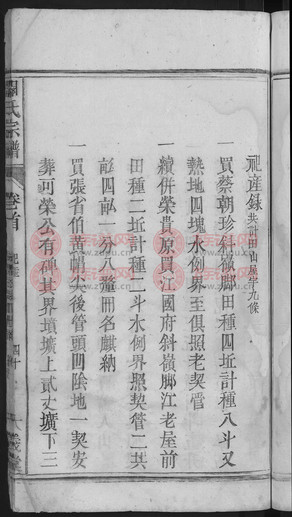 祀產錄共計田山屋宇九條
一買蔡朝珍斜嶺脚田種四坵計種八斗又
熱地四塊水例界至俱照老契管
一續併榮貴原買江國府斜嶺脚江老屋前
田種二坵計種二斗水例界照契管二共
畝四畝一分八釐冊名麒納
一買張省伯黃蜡尖後管頭凹陰地一契安
葬可榮公有碑其界墳壙上貳丈壙下三
氏宗譜
卷首
祀產
四十
義堂